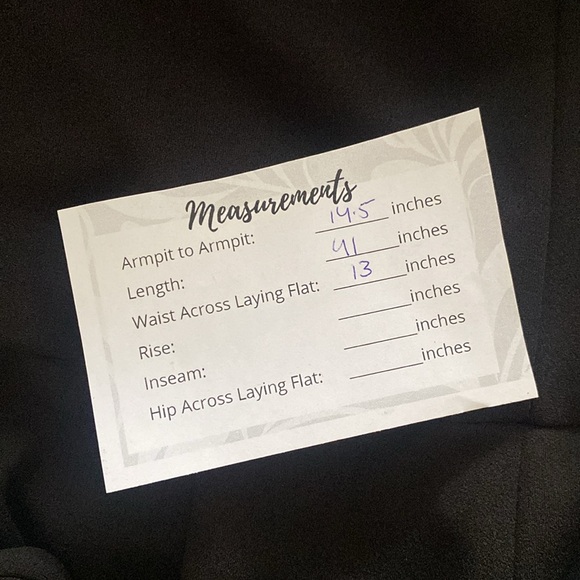 Measurements
Armpit to Armpit: 14.5 inches
Length: 41 inches
Waist Across Laying Flat: 13 inches
Rise: inches
Inseam: inches
Hip Across Laying Flat: inches